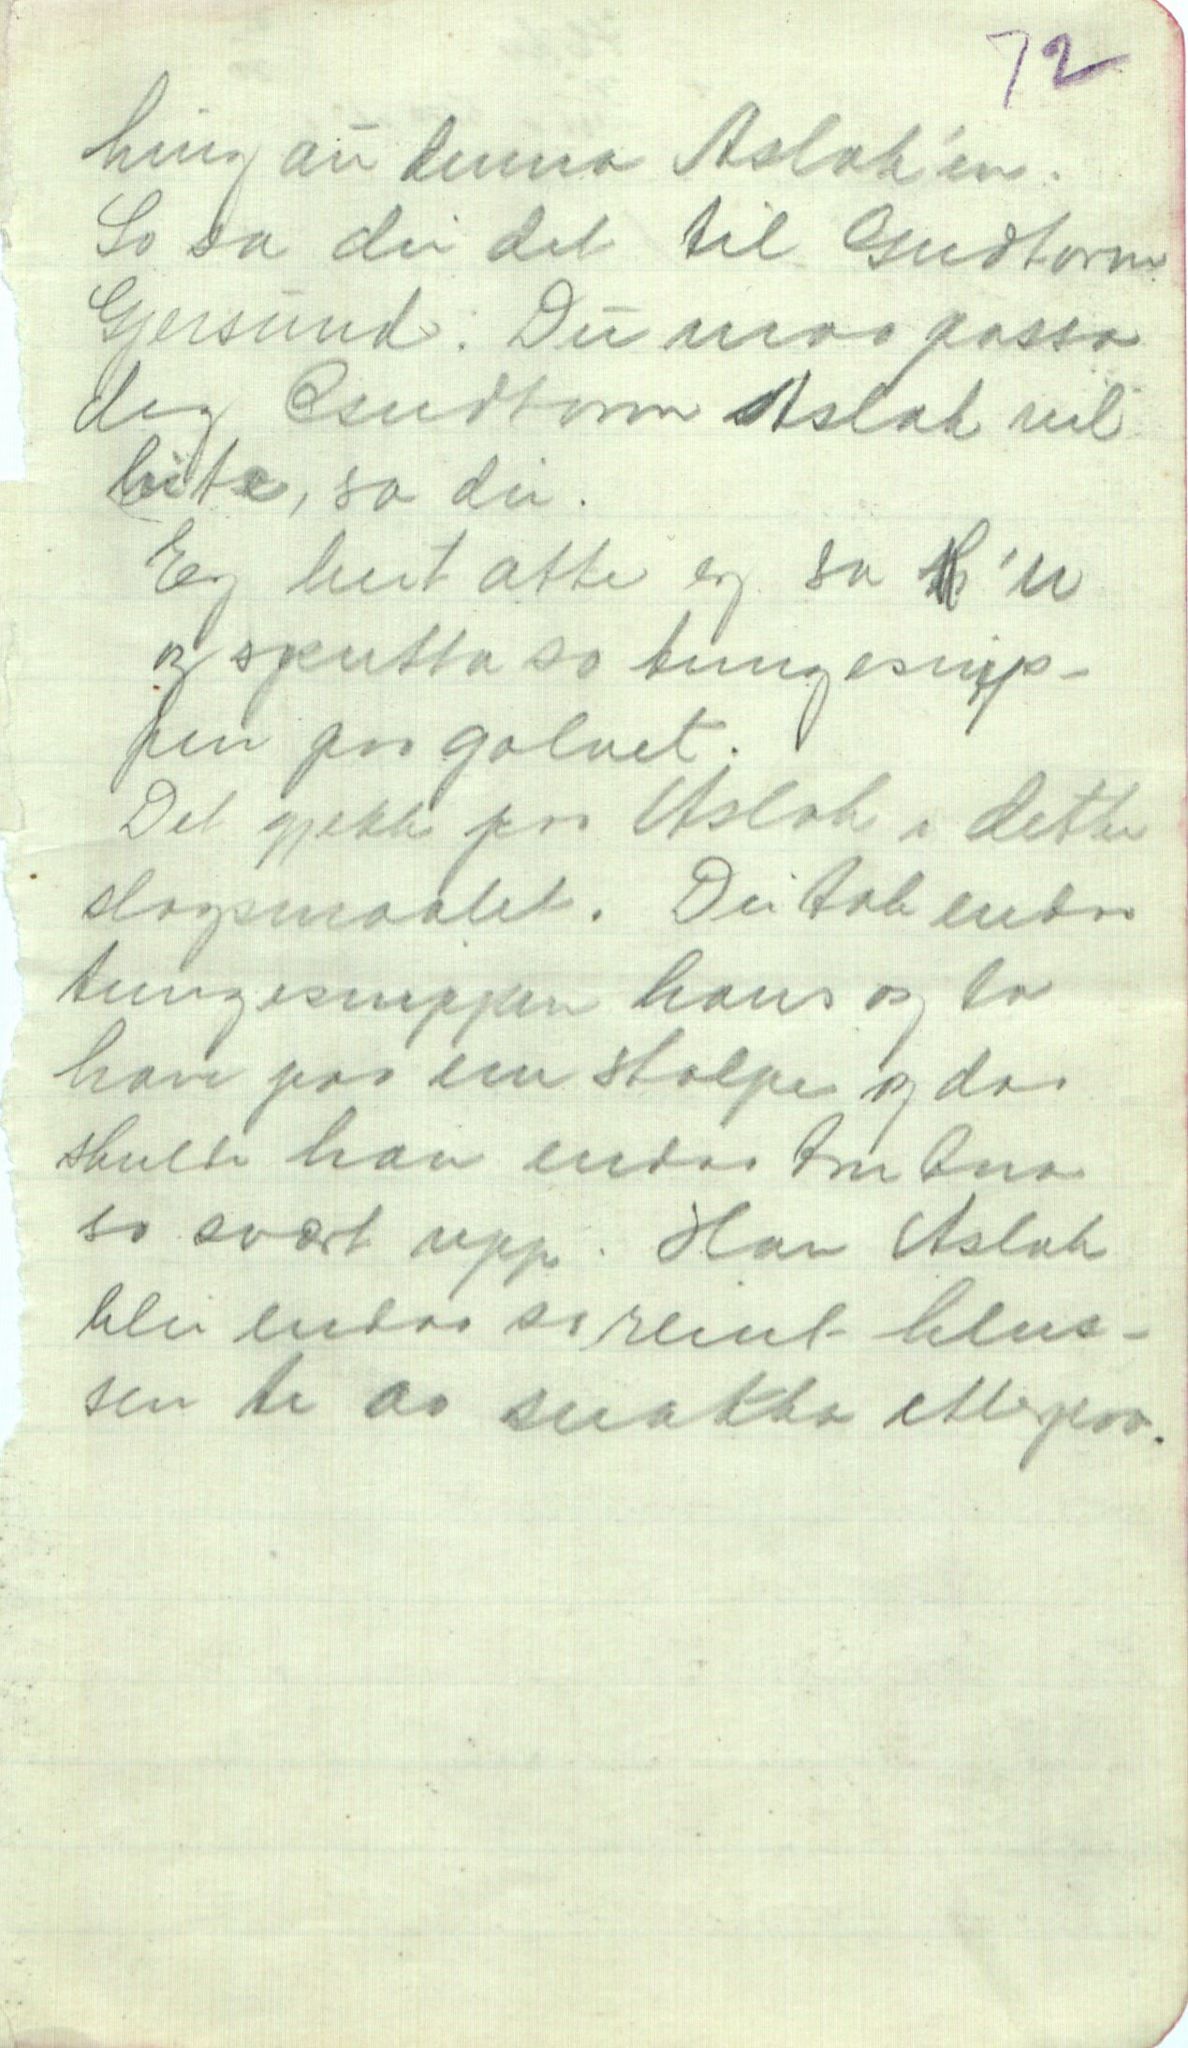 72
hing au denna Aslak'en.
So sa dei det til Gudtorm
Gjersund: Du maa passa
deg Gudtorm Aslak vil
bite, sa dei.
Eg beit atte eg sa K'n
og sputta so tungesnip-
pen paa golvet.
Det gjekk paa Aslak i dette
slagsmaalet. Dei tok endaa
tungesnippen hans og la
han paa ein stolpe og daa
skulde han endaa
so svært upp. Han Aslak
blei endaa so reint bleus-
sen te aa snakka etterpaa.